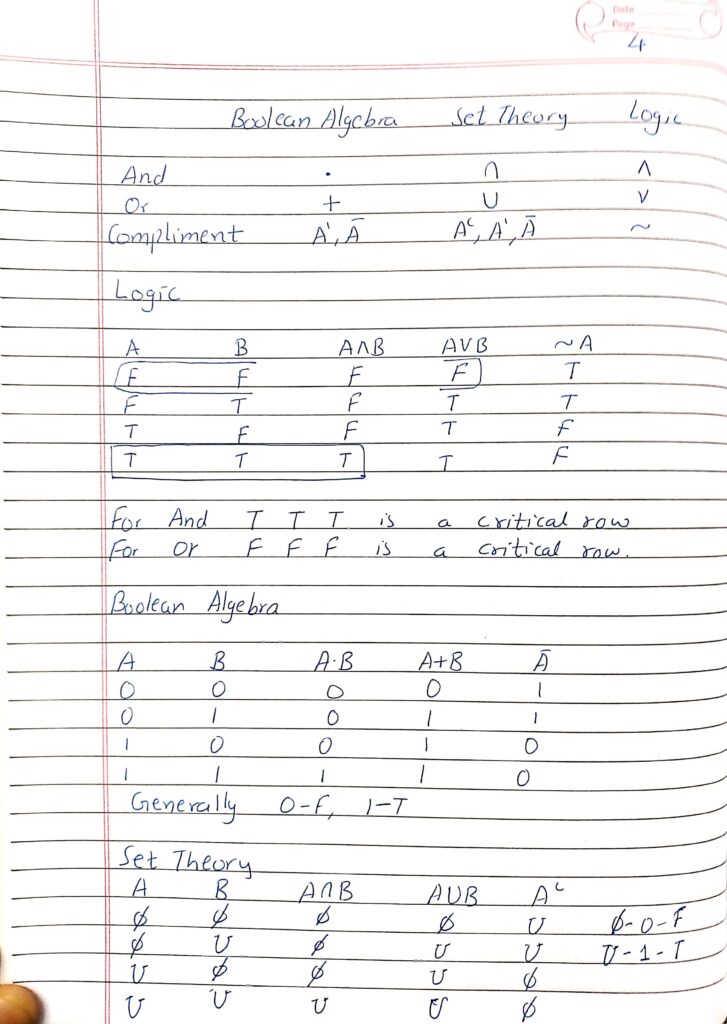 Date
Page
4
Boolean Algebra Set Theory Logic
And · ∩ ∧
Or + ∪ ∨
Compliment A', Ā Aᶜ, A', Ā ~
Logic
A B A∧B A∨B ~A
F F F F T
F T F T T
T F F T F
T T T T F
For And T T T is a critical row
For Or F F F is a critical row.
Boolean Algebra
A B A·B A+B Ā
0 0 0 0 1
0 1 0 1 1
1 0 0 1 0
1 1 1 1 0
Generally 0-F, 1-T
Set Theory
A B A∩B A∪B Aᶜ
φ φ φ φ U φ-0-F
φ U φ U U U-1-T
U φ φ U φ
U U U U φ